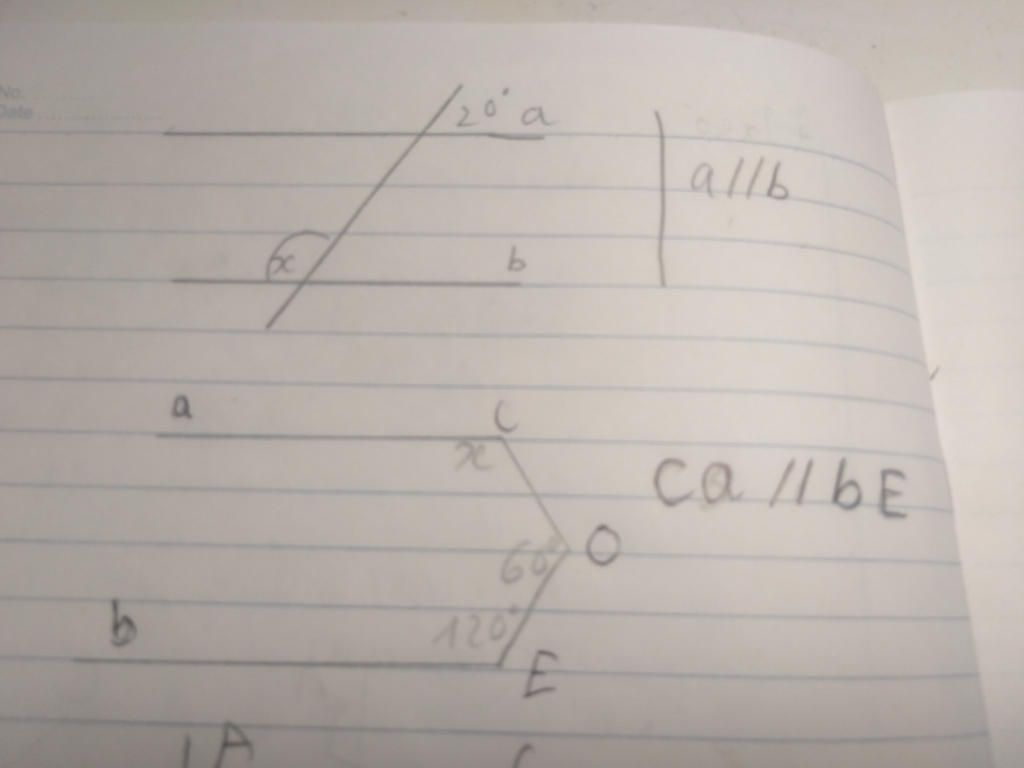 No.
Date
20° a
a//b
x
b
a
C
x
Ca // bE
60°
O
120°
b
E
A